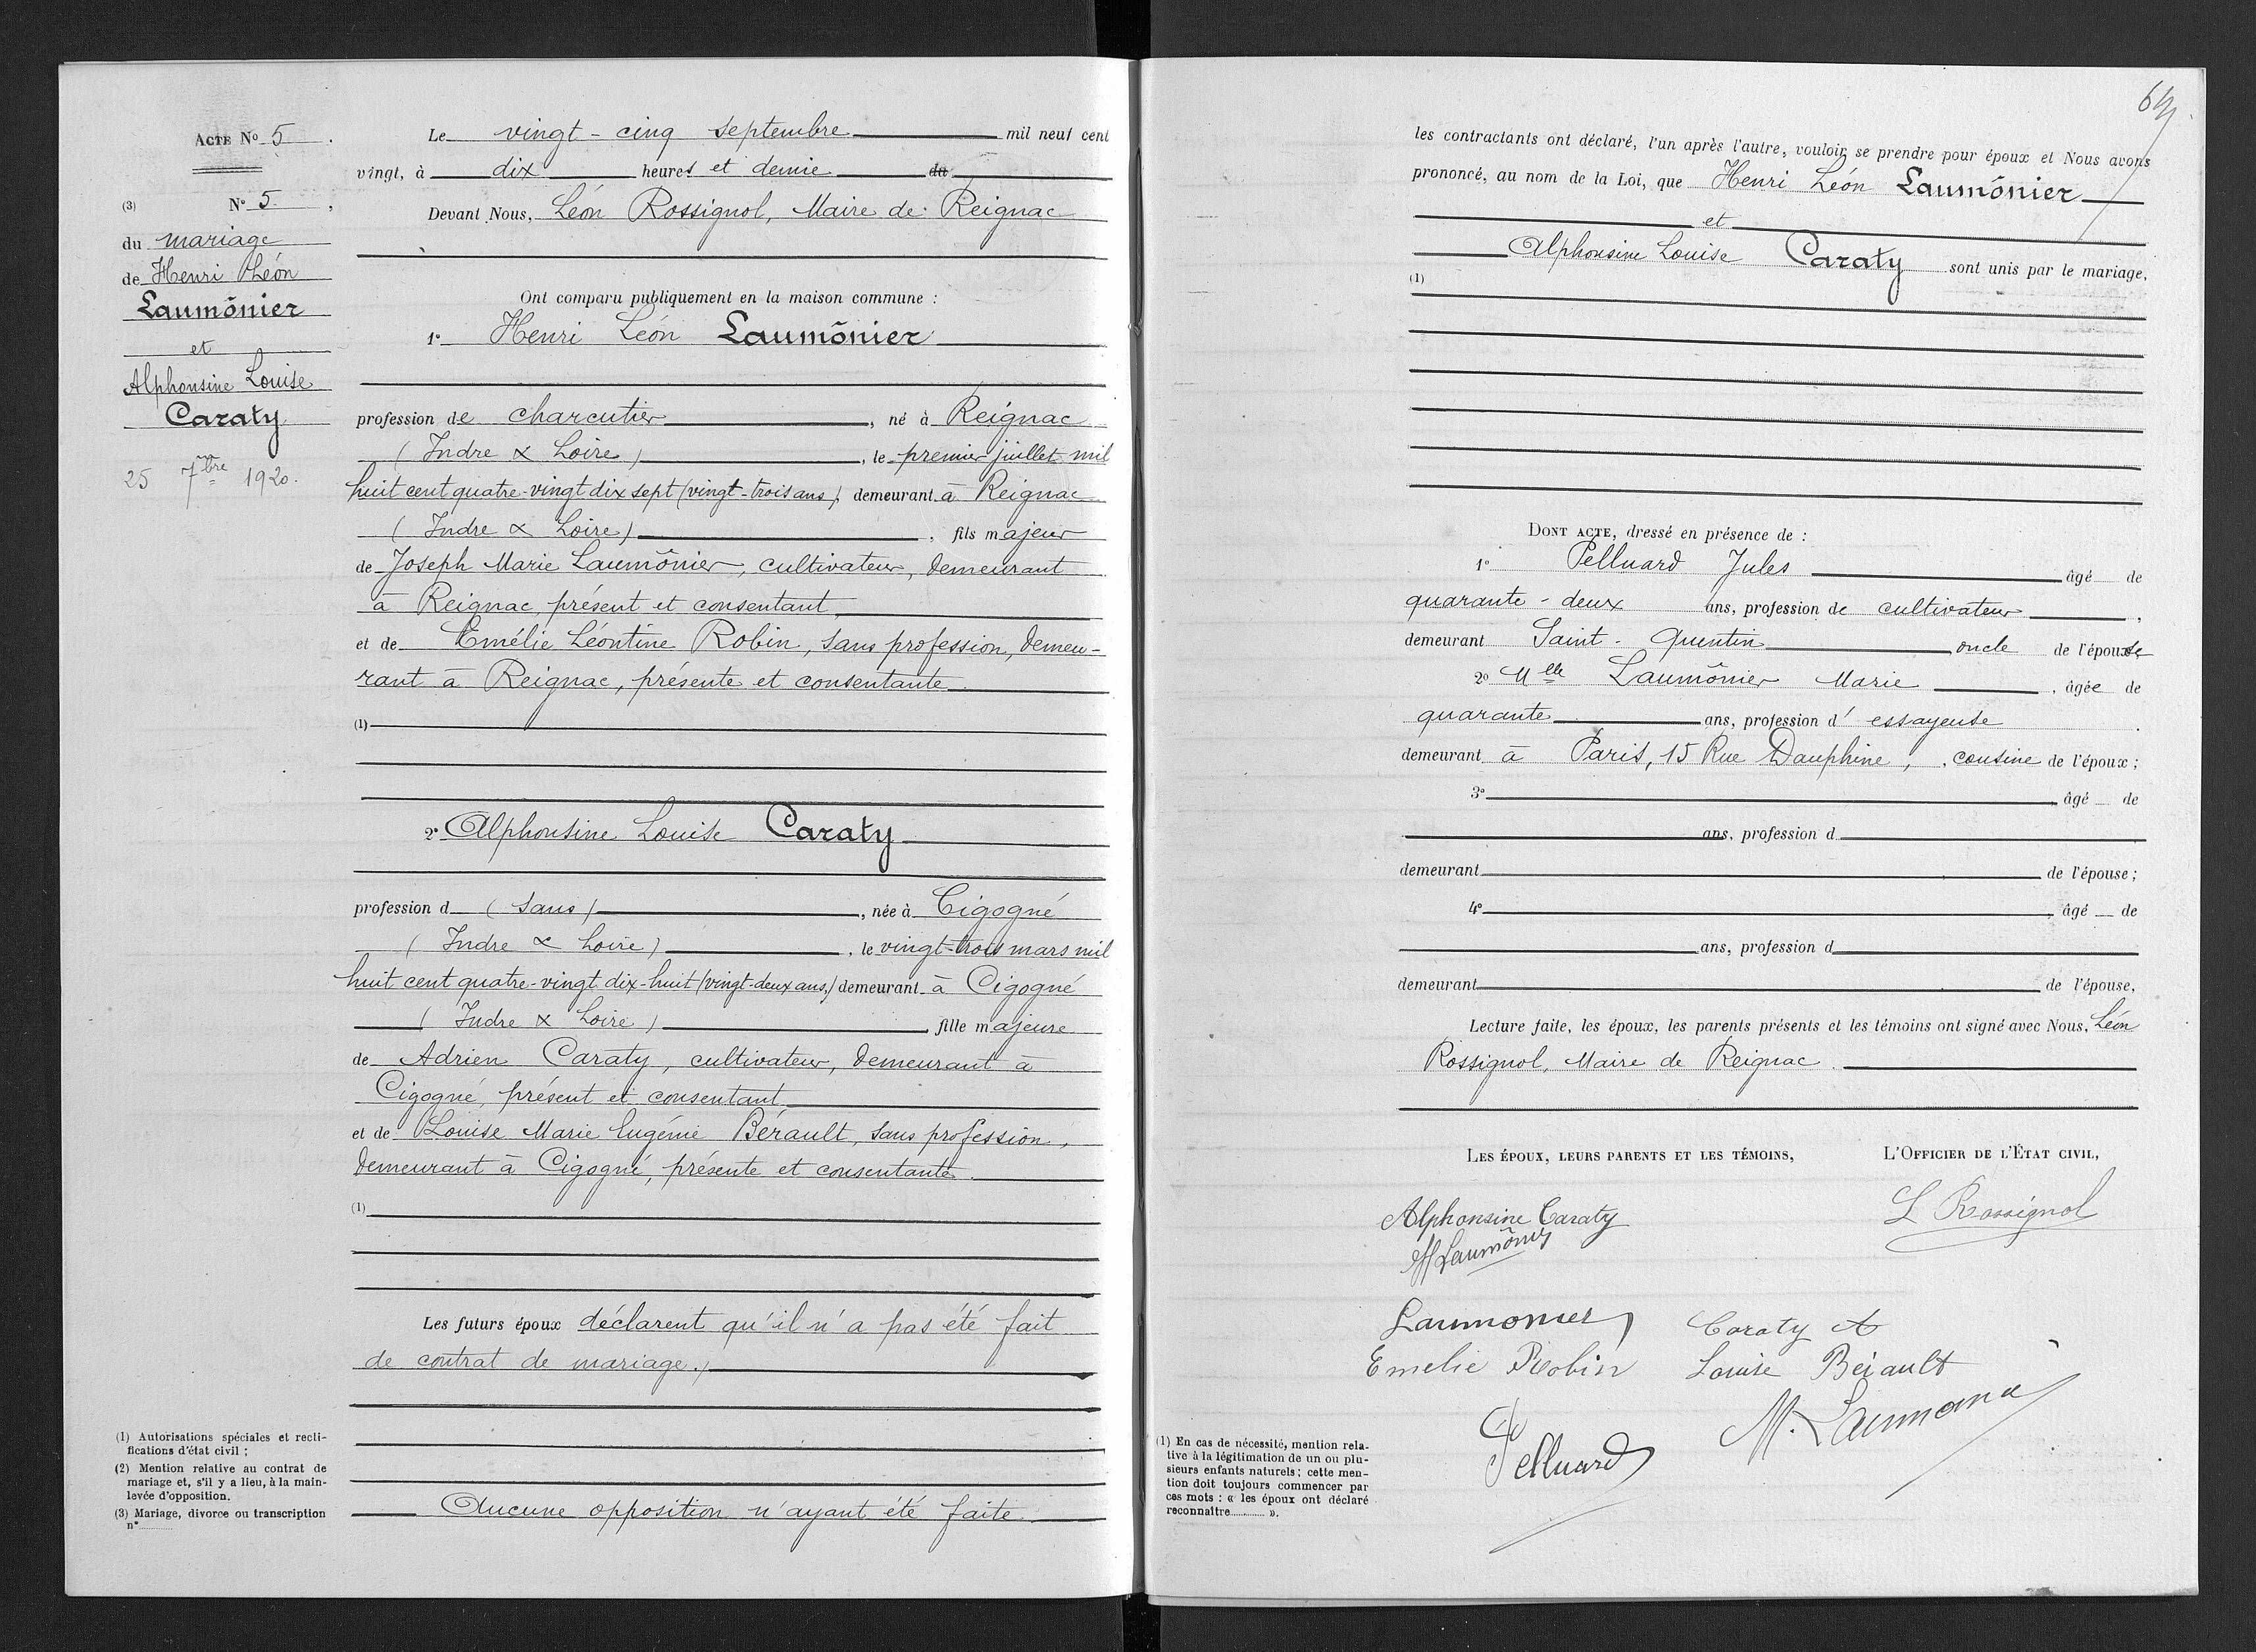 Acte No 5.
No 5,
(3)
du mariage
de Henri Léon
Laumônier
et
Alphonsine Louise
Caraty
25 7bre 1920.
(1) Autorisations spéciales et recti-
fications d'état civil ;
(2) Mention relative au contrat de
mariage et, s'il y a lieu, à la main-
levée d'opposition.
(3) Mariage, divorce ou transcription
n°
Le vingt-cinq septembre mil neuf cent
vingt, à dix heures et demie du
Devant Nous, Léon Rossignol, Maire de Reignac
Ont comparu publiquement en la maison commune :
1° Henri Léon Laumônier
profession de charcutier, né à Reignac
(Indre & Loire), le premier juillet mil
huit cent quatre-vingt dix sept (vingt-trois ans), demeurant à Reignac
(Indre & Loire), fils majeur
de Joseph Marie Laumônier, cultivateur, demeurant
à Reignac, présent et consentant
et de Emélie Léontine Robin, sans profession, demeu-
rant à Reignac, présente et consentante.
(1)
2° Alphonsine Louise Caraty
profession d (sans), née à Cigogné
(Indre & Loire), le vingt-trois mars mil
huit cent quatre-vingt dix-huit (vingt-deux ans,) demeurant à Cigogné
(Indre & Loire) fille majeure
de Adrien Caraty, cultivateur, demeurant à
Cigogné, présent et consentant
et de Louise Marie Eugénie Bérault, sans profession,
demeurant à Cigogné, présente et consentante.
(1)
Les futurs époux déclarent qu'il n'a pas été fait
de contrat de mariage.
Aucune opposition n'ayant été faite
les contractants ont déclaré, l'un après l'autre, vouloir se prendre pour époux et Nous avons
prononcé, au nom de la Loi, que Henri Léon Laumônier
et
Alphonsine Louise Caraty sont unis par le mariage,
(1)
Dont acte, dressé en présence de :
1° Pelluard Jules âgé de
quarante-deux ans, profession de cultivateur,
demeurant Saint-Quentin oncle de l'épouse
2° Mlle Laumônier Marie, âgée de
quarante ans, profession d'essayeuse
demeurant à Paris, 15 Rue Dauphine, cousine de l'époux ;
3° âgé de
ans, profession d
demeurant de l'épouse ;
4° âgé de
ans, profession d
demeurant de l'épouse,
Lecture faite, les époux, les parents présents et les témoins ont signé avec Nous, Léon
Rossignol, Maire de Reignac.
Les époux, leurs parents et les témoins,
L'Officier de l'État civil,
Alphonsine Caraty
L Rossignol
H Laumônier
Laumonier
Caraty A
Emelie Robin
Louise Bérault
Pelluard
M. Laumonié
(1) En cas de nécessité, mention rela-
tive à la légitimation de un ou plu-
sieurs enfants naturels ; cette men-
tion doit toujours commencer par
ces mots : « les époux ont déclaré
reconnaître ».